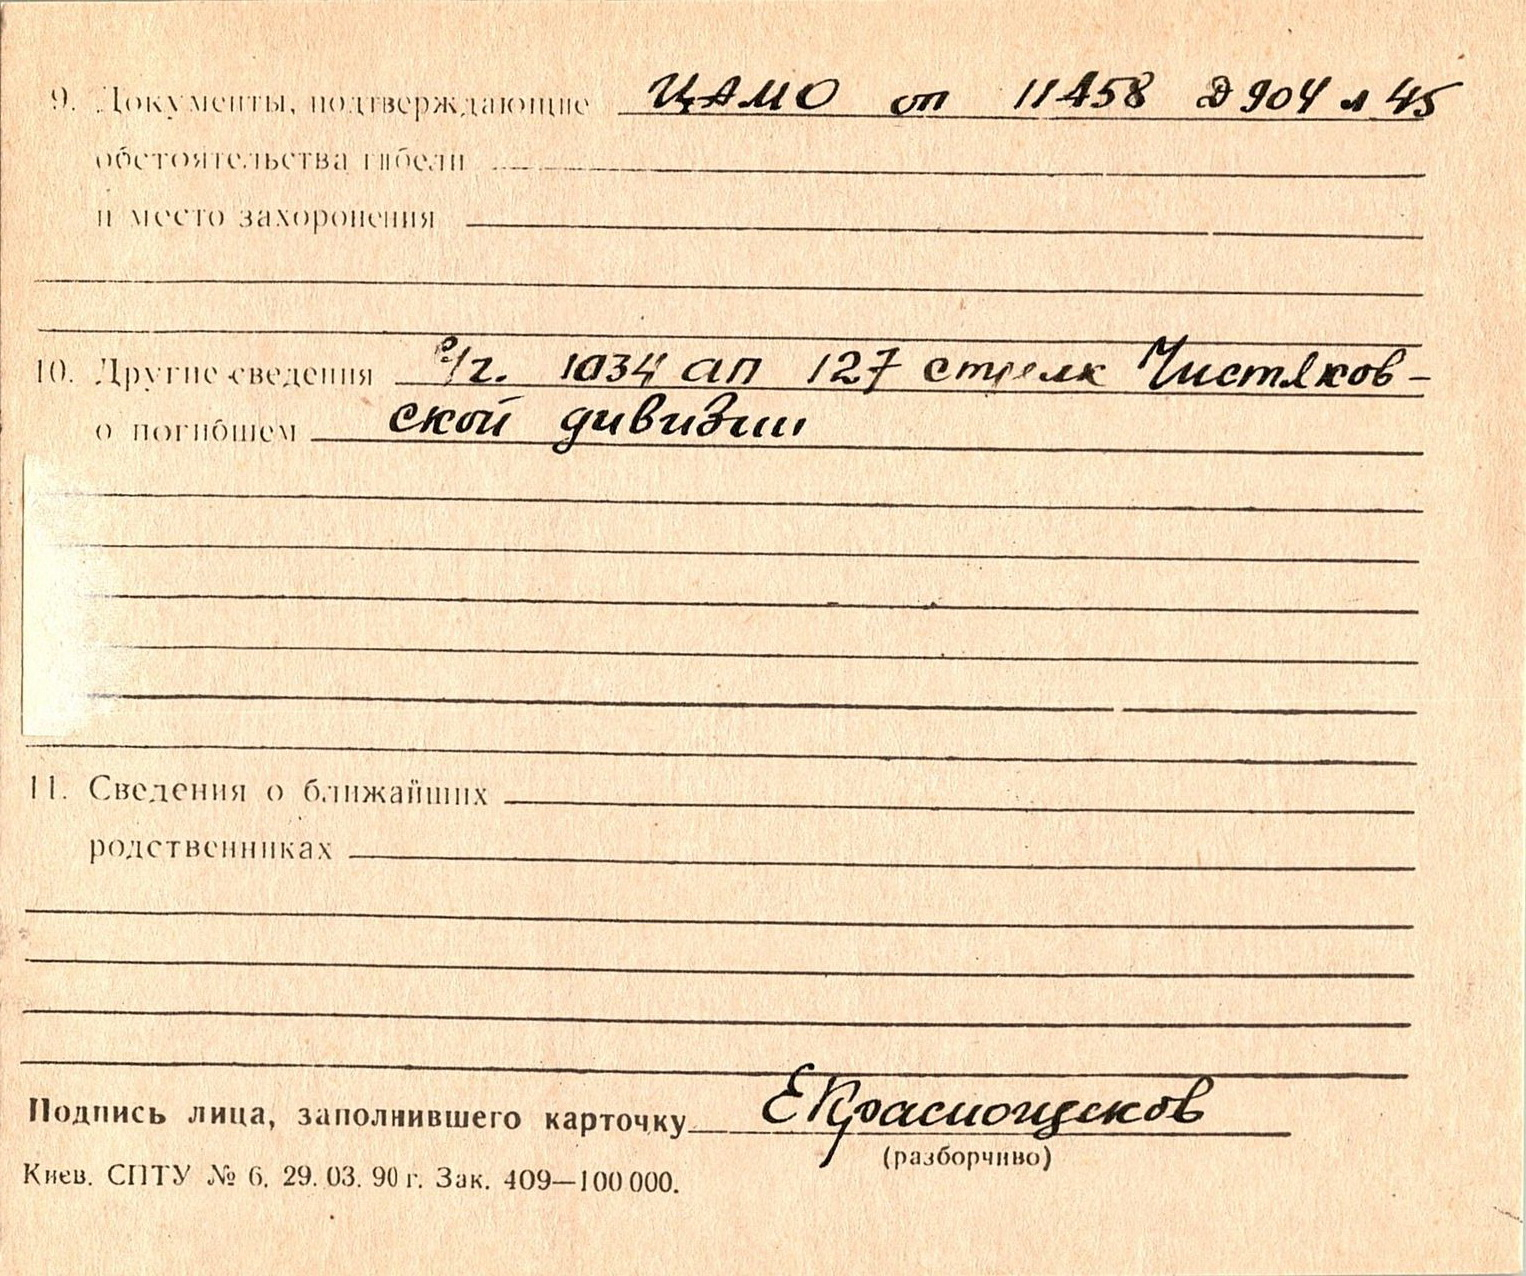 9. Документы, подтверждающие ЦАМО оп 11458 Д 904 л 45
обстоятельства гибели
и место захоронения
10. Другие сведения с/г. 1034 ап 127 стрелк Чистяков-
о погибшем ской дивизии
11. Сведения о ближайших
родственниках
Подпись лица, заполнившего карточку ЕКраснощеков
(разборчиво)
Киев. СПТУ № 6. 29. 03. 90 г. Зак. 409—100 000.